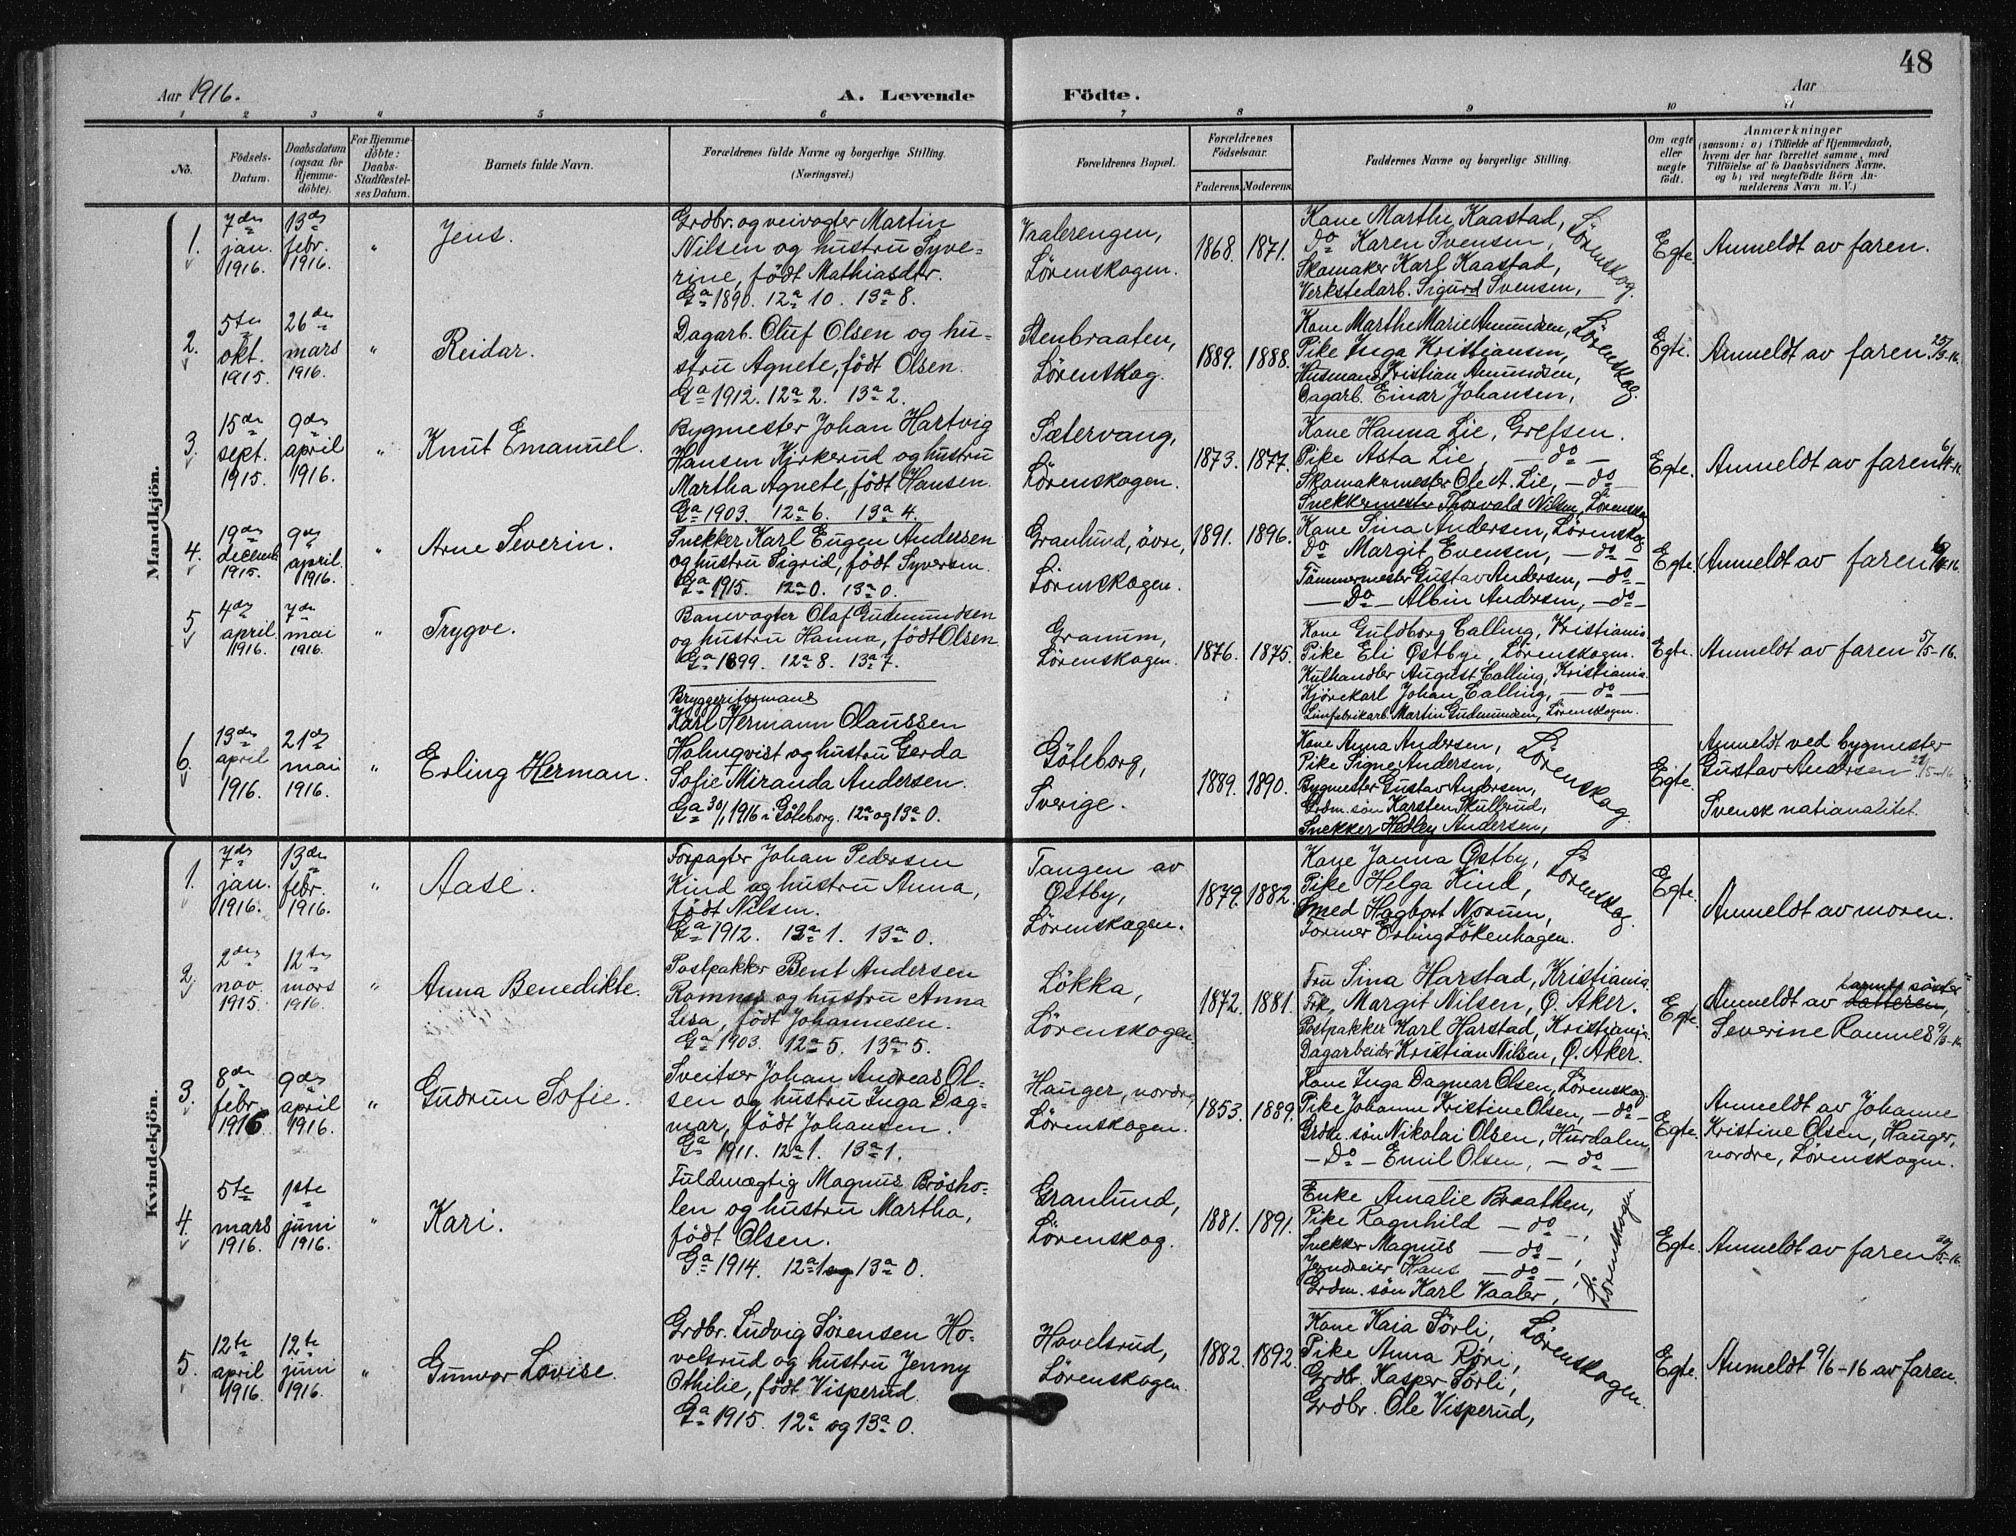 48
Aar 1916. A. Levende Födte. Aar
1 2 3 4 5 6 7 8 9 10 11
No.
Födsels-Datum.
Daabsdatum (ogsaa for Hjemme-döbte).
For Hjemme-döbte: Daabs-Stadfæstel-ses Datum.
Barnets fulde Navn.
Forældrenes fulde Navne og borgerlige Stilling.
(Næringsvei.)
Forældrenes Bopæl.
Forældrenes Födselsaar.
Faderens. Moderens.
Faddernes Navne og borgerlige Stilling.
Om ægte eller uægte født.
Anmærkninger
(saasom: a) i Tilfælde af Hjemmedaab,
hvem der har forrettet samme, med
Tilföielse af to Daabsvidners Navne,
og b) ved uægtefödte Börn An-
melderens Navn m. V.)
Mandkjön.
1.
7de jan. 1916.
13de febr. 1916.
"
Jens.
Grdbr. og veivogter Martin
Nilsen og hustru Syve-
rine, født Mathiasdtr.
Ga 1890. 12a 10. 13a 8.
Vaalerengen,
Lørenskogen.
1868. 1871.
Kone Marthe Kaastad,
Do Karen Svensen,
Skomaker Karl Kaastad,
Verkstedarb. Sigurd Svensen,
Lørenskog.
Egte.
Anmeldt av faren.
2.
5te okt. 1915.
26de mars 1916.
"
Reidar.
Dagarb. Oluf Olsen og hu-
stru Agnete, født Olsen.
Ga 1912. 12a 2. 13a 2.
Stenbraaten,
Lørenskog.
1889. 1888.
Kone Marthe Marie Amundsen,
Pike Inga Kristiansen,
Husmand Kristian Amundsen,
Dagarb. Einar Johansen,
Lørenskog.
Egte.
Anmeldt av faren 25/3-16.
3.
15de sept. 1915.
9de april 1916.
"
Knut Emanuel.
Bygmester Johan Hartvig
Hansen Kjrkerud og hustru
Martha Agnete, født Hansen.
Ga 1903. 12a 6. 13a 4.
Sætervang,
Lørenskogen.
1873. 1877.
Kone Hanna Lie, Grefsen.
Pike Asta Lie, — do —
Skomakermester Ole A. Lie, — do —
Snekkermester Thorvald Nilsen, Lørenskog
Egte.
Anmeldt av faren 6/4-16.
4.
19de decemb. 1915.
9de april 1916.
"
Arne Severin.
Snekker Karl Eugen Andersen
og hustru Sigrid, født Syversen.
Ga 1915. 12a 0. 13a 0.
Granlund, övre,
Lørenskogen.
1891. 1896.
Kone Lina Andersen, Lørenskog
Do Margit Evensen, — do —
Tømmermester Gustav Andersen, — do —
— Do — Albin Andersen, — do —
Egte.
Anmeldt av faren
5
4de april 1916.
7de mai 1916.
"
Trygve.
Banevogter Olaf Gudmundsen
og hustru Hanna, født Olsen.
Ga 1899. 12a 8. 13a 7.
Granum,
Lørenskogen.
1876. 1875.
Kone Guldborg Calling, Kristiania.
Pike Eli Østbye, Lørenskogen.
Kulhandler August Calling, Kristiania.
Kjørekarl Johan Calling, — do —
Limfabrikarb. Martin Gudmundsen, Lørenskogen.
Egte.
Anmeldt av faren 5/5-16.
6.
13de april 1916.
21de mai 1916.
"
Erling Herman.
Bryggeriformand
Karl Hermann Olaussen
Holmqvist og hustru Gerda
Sofie Miranda Andersen.
Ga 30/1 1916 i Göteborg. 12a og 13a 0.
Göteborg,
Sverige.
1889. 1890.
Kone Anna Andersen,
Pike Signe Andersen,
Bygmester Gustav Andersen,
Grdm. søn Karsten Skullerud,
Snekker Hedley Andersen,
Lørenskog.
Egte.
Anmeldt ved bygmester
Gustav Andersen 21/5-16
Svensk nationalitet.
Kvindekjön.
1.
7de jan. 1916.
13de febr. 1916.
"
Aase.
Forpagter Johan Pedersen
Kind og hustru Anna,
født Nilsen.
Ga 1912. 12a 1. 13a 0.
Tangen av
Østby,
Lørenskogen.
1879. 1882.
Kone Janna Østby,
Pike Helga Kind,
Smed Hagbart Norum,
Former Erling Løkenhagen.
Lørenskog.
Egte.
Anmeldt av moren.
2.
2den nov. 1915.
12te mars 1916.
"
Anna Benedikte.
Postpakker Bent Andersen
Romnes og hustru Anna
Lisa, født Johannesen.
Ga 1903. 12a 5. 13a 5.
Løkka,
Lørenskogen.
1872. 1881.
Fru Lina Harstad, Kristiania.
Frk. Margit Nilsen, Ø. Aker.
Postpakker Karl Harstad, Kristiania.
Dagarbeider Kristian Nilsen, Ø. Aker.
Egte.
barnets søster
Anmeldt av datteren,
Severine Romnes 9/3-16.
3.
8de febr. 1916
9de april 1916.
"
Gudrun Sofie.
Sveitser Johan Andreas Ol-
sen og hustru Inga Dag-
mar, født Johansen.
Ga 1911. 12a 1. 13a 1.
Hauger, nordre,
Lørenskogen.
1853. 1889.
Kone Inga Dagmar Olsen, Lørenskog.
Pike Johanne Kristine Olsen, — do —
Grdbr. søn Nikolai Olsen, Hurdalen,
— Do — Emil Olsen, — do —
Egte.
Anmeldt av Johanne
Kristine Olsen, Hauger,
nordre, Lørenskogen.
4.
5te mars 1916.
1ste juni 1916.
"
Kari.
Fuldmægtig Magnus Bråsho-
len og hustru Martha,
født Olsen.
Ga 1914. 12a 1 og 13a 0.
Granlund,
Lørenskog.
1881. 1891.
Enke Amalie Braathen,
Pike Ragnhild — do —,
Snekker Magnus — do —,
Jerndreier Hans — do —,
Grdm. søn Karl Vaaler,
Lørenskogen
Egte.
Anmeldt av faren
5.
12te april 1916.
12te juni 1916.
"
Gunvor Lovise.
Grdbr. Ludvig Sørensen Ho-
velsrud og hustru Jenny
Othilie, født Visperud.
Ga 1915. 12a og 13a 0.
Hovelsrud,
Lørenskogen.
1882. 1892.
Kone Kaia Sørli,
Pike Anna Røri,
Grdbr. Kasper Sørli,
Grdbr. Ole Visperud,
Lørenskogen.
Egte.
Anmeldt 9/6-16 av faren.